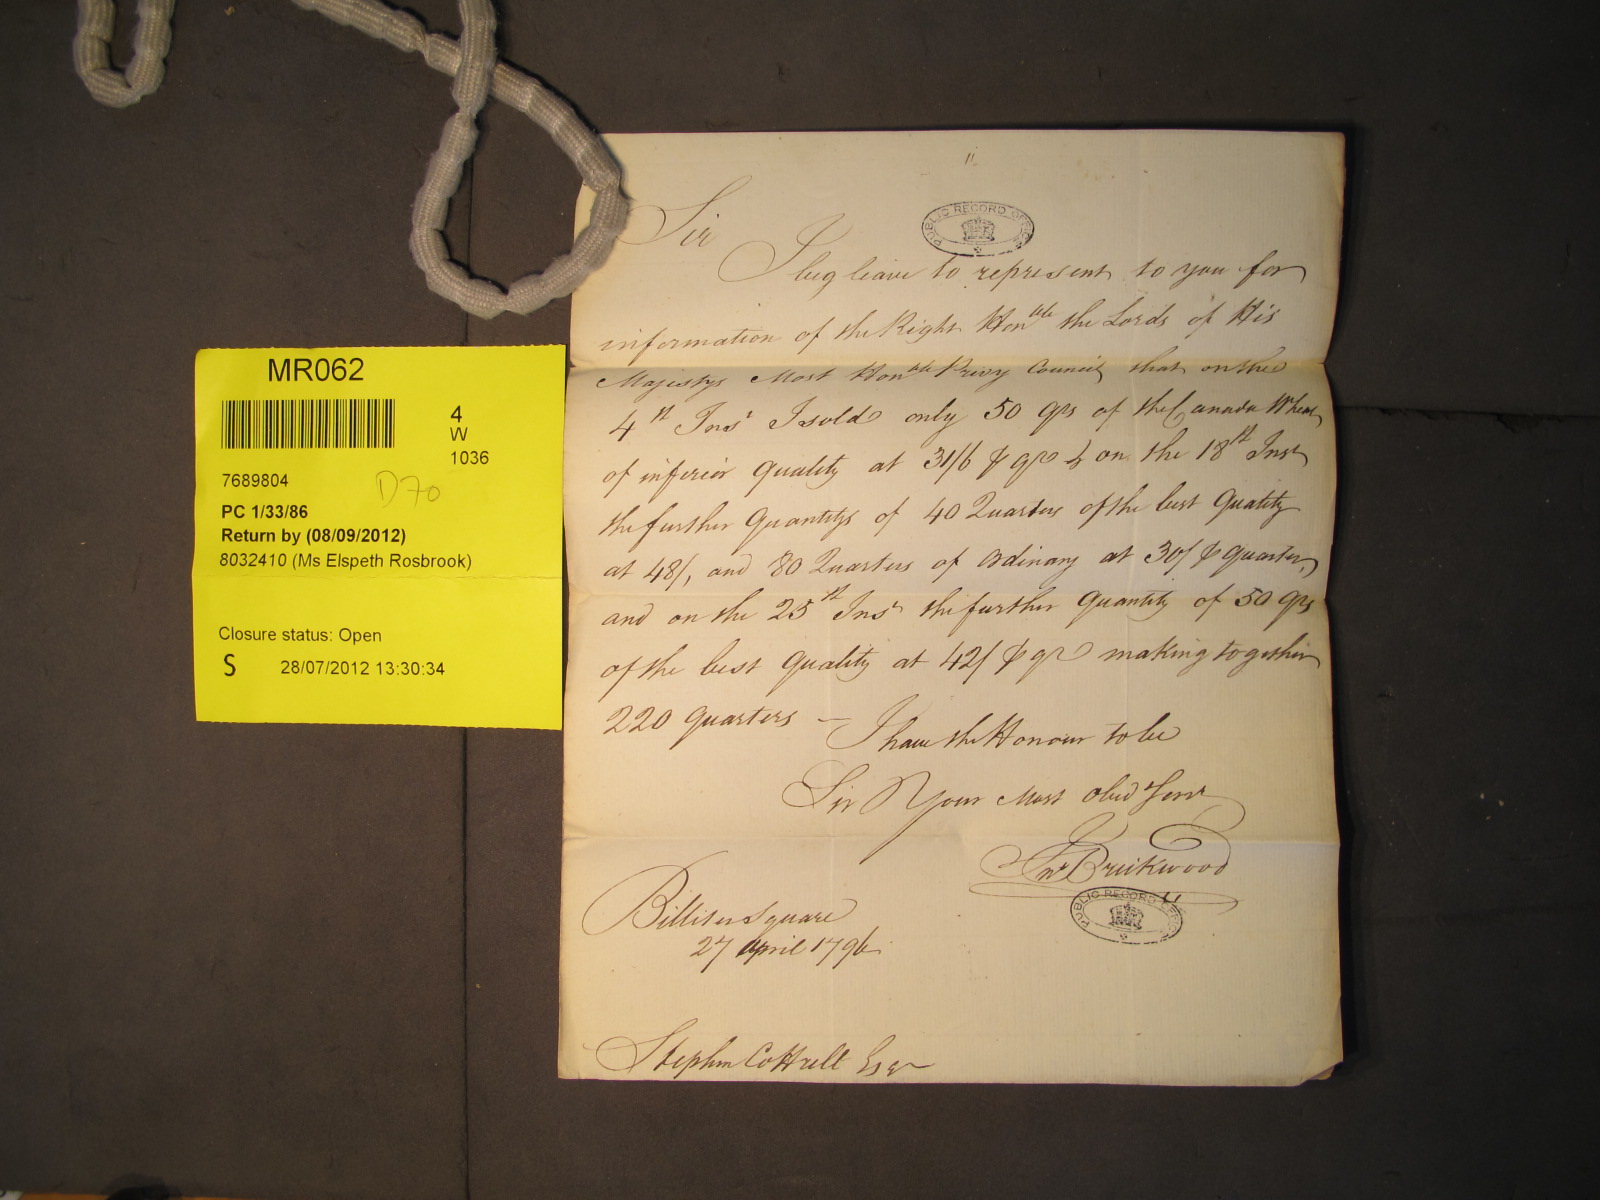 MR062
4
W
1036
7689804
D70
PC 1/33/86
Return by (08/09/2012)
8032410 (Ms Elspeth Rosbrook)
Closure status: Open
S 28/07/2012 13:30:34
11
PUBLIC RECORD OFFICE
Sir
I beg leave to represent to you for
information of the Right Honble the Lords of His
Majestys Most Honble Privy Council that on the
4th Inst I sold only 50 qrs of the Canada Wheat
of inferior Quality at 31/6 ⅌ qr & on the 18th Inst
the further Quantitys of 40 Quarters of the best Quality
at 48/, and 80 Quarters of ordinary at 30/ ⅌ quarter,
and on the 25th Inst the further Quantity of 50 qrs
of the best Quality at 42/ ⅌ qr making together
220 quarters — I have the Honour to be
Sir Your Most Obed Servt
Jno Brickwood
PUBLIC RECORD OFFICE
Billiter Square
27 April 1796
Stephen Cottrell Esqr